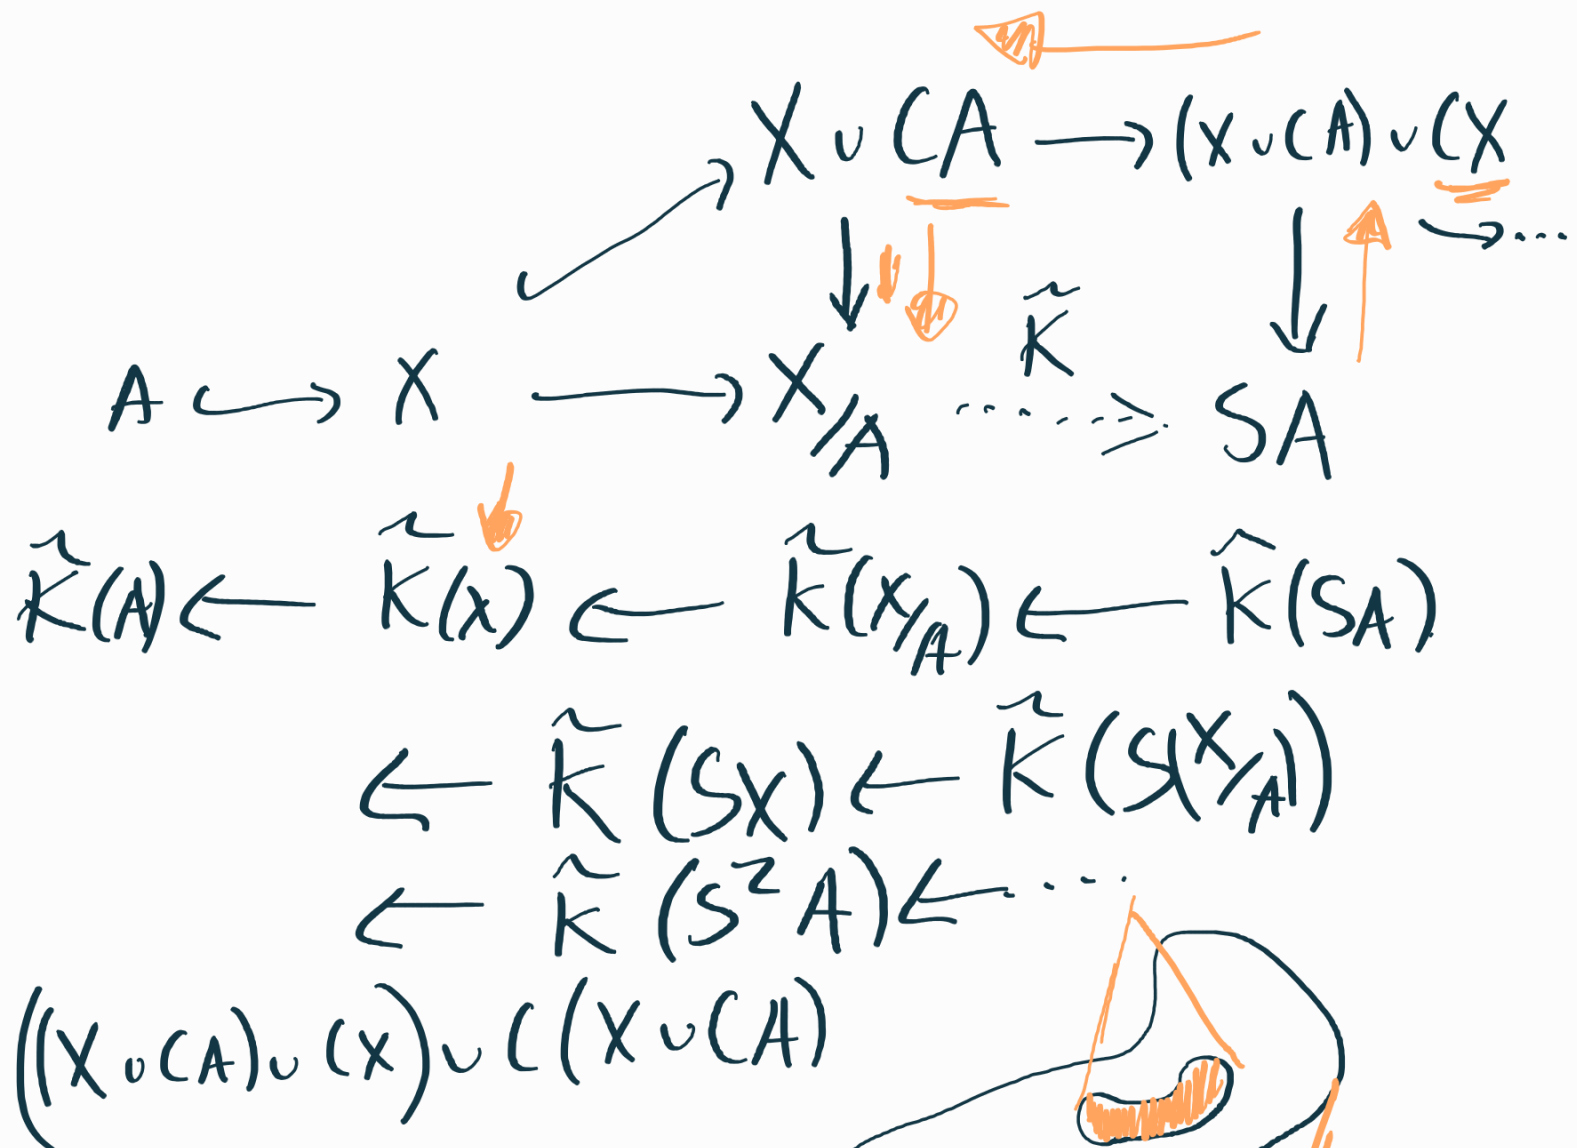 X ∪ CA → (X ∪ CA) ∪ CX
↪ ...
K̃
A ↪ X → X/A ⇢ SA
K̃(A) ← K̃(X) ← K̃(X/A) ← K̃(SA)
← K̃(SX) ← K̃(S(X/A))
← K̃(S²A) ← ...
((X ∪ CA) ∪ CX) ∪ C(X ∪ CA)